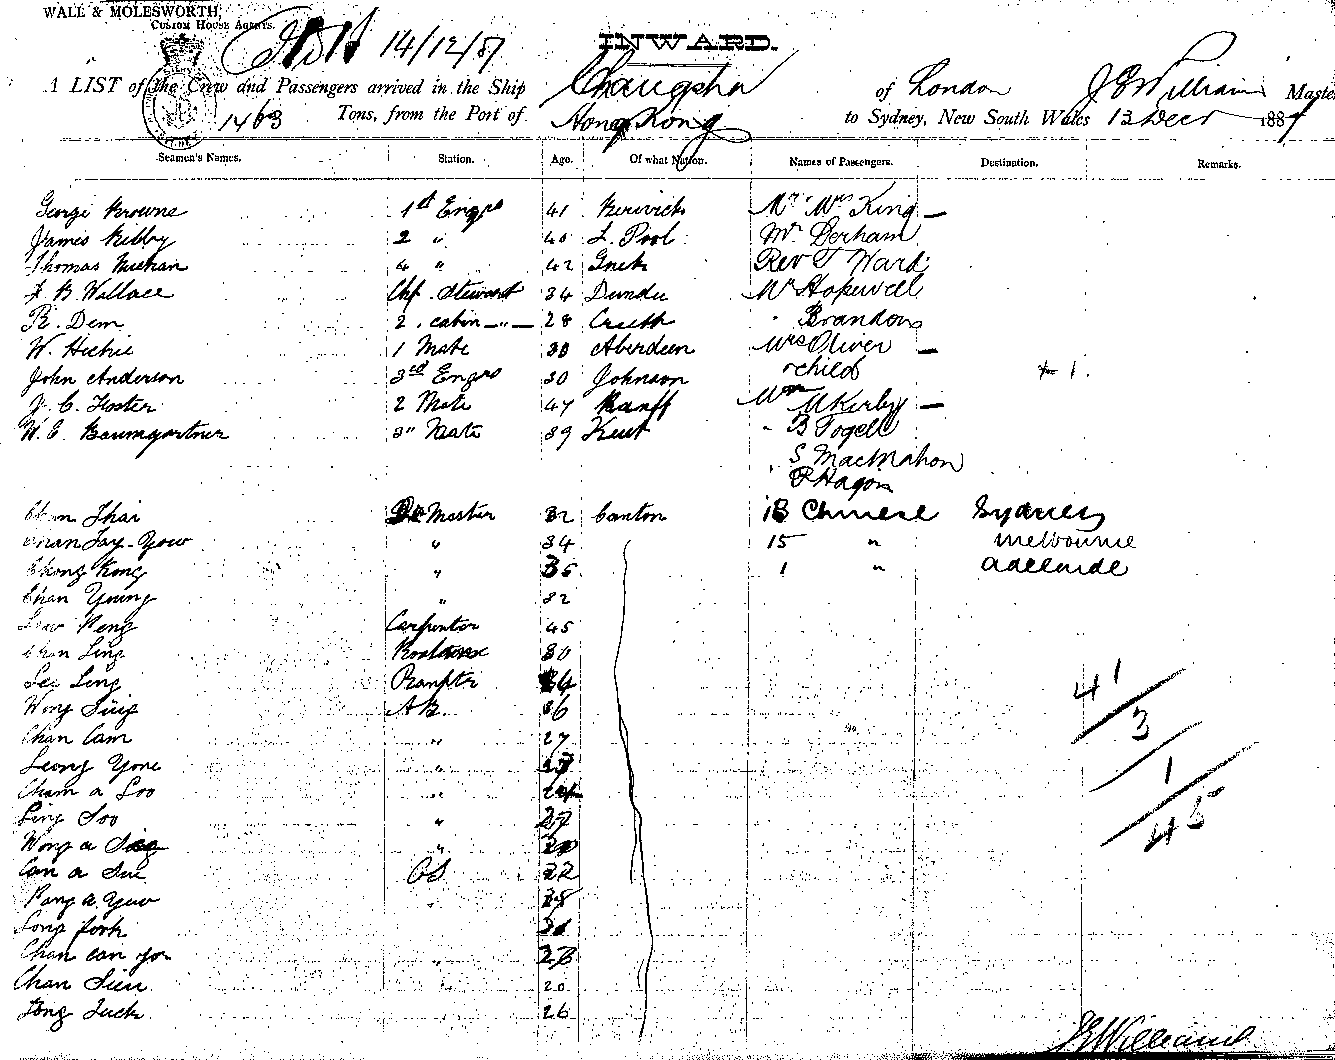 WALL & MOLESWORTH,
Custom House Agents.
14/12/87
INWARD.
A LIST of the Crew and Passengers arrived in the Ship Changsha of London J E Williams Master
1463 Tons, from the Port of Hong Kong to Sydney, New South Wales 13 Decr 1887
Seamen's Names. Station. Age. Of what Nation. Names of Passengers. Destination. Remarks.
George Browne 1st Engr 41 Berwick Mr Mrs King —
James Kibby 2 " 40 L. Pool Mr Derham
Thomas 4 " 42 Rev T Ward
B Wallace Chf. Steward 34 Dundee Mr Hopewell
R. Dem 2. cabin —"— 28 " Brandon
W. Hickie 1 Mate 38 Aberdeen Mrs Oliver —
John Anderson 3rd Engr 30 Johnson child 1.
J. C. Foster 2 Mate 47 Banff McKirby —
W. E. Baumgartner 3" Mate 39 Kent " B Fogell
S MacMahon
P Hagin
Chan Thai Master 32 Canton 18 Chinese Sydney
Chan Say-Yow " 34 15 " Melbourne
Chong Kong " 35 1 " Adelaide
Chan Young " 32
Peng Carpenter 45
Chan Ling 30
See Ling 34
Wong Sing AB. 36
Chan Cam " 27
Leong Yone "
Cham a Loo " 24
Ling Soo " 27
Wong a "
Can a Sue OS 22
Pang a Yuw 25
Long fook
Chan can yo 28
Chan Sien 20
Tong Tuck 26
41
3
1
45
J E Williams